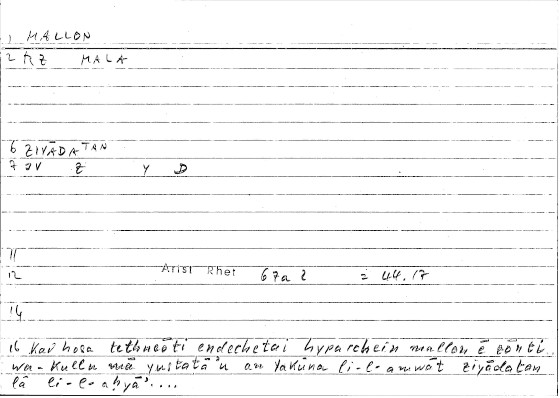 1 MALLON
2 RZ MALA
6 ZIYĀDATAN
7 JV Z Y D
11
12 Arist Rhet 67a2 = 44.17
14
16 Kai hosa tethneōti endechetai hyparchein mallon ē zōnti
wa-kullu mā yustaṭā'u an yakūna li-l-amwāt ziyādatan
lā li-l-aḥyā'....